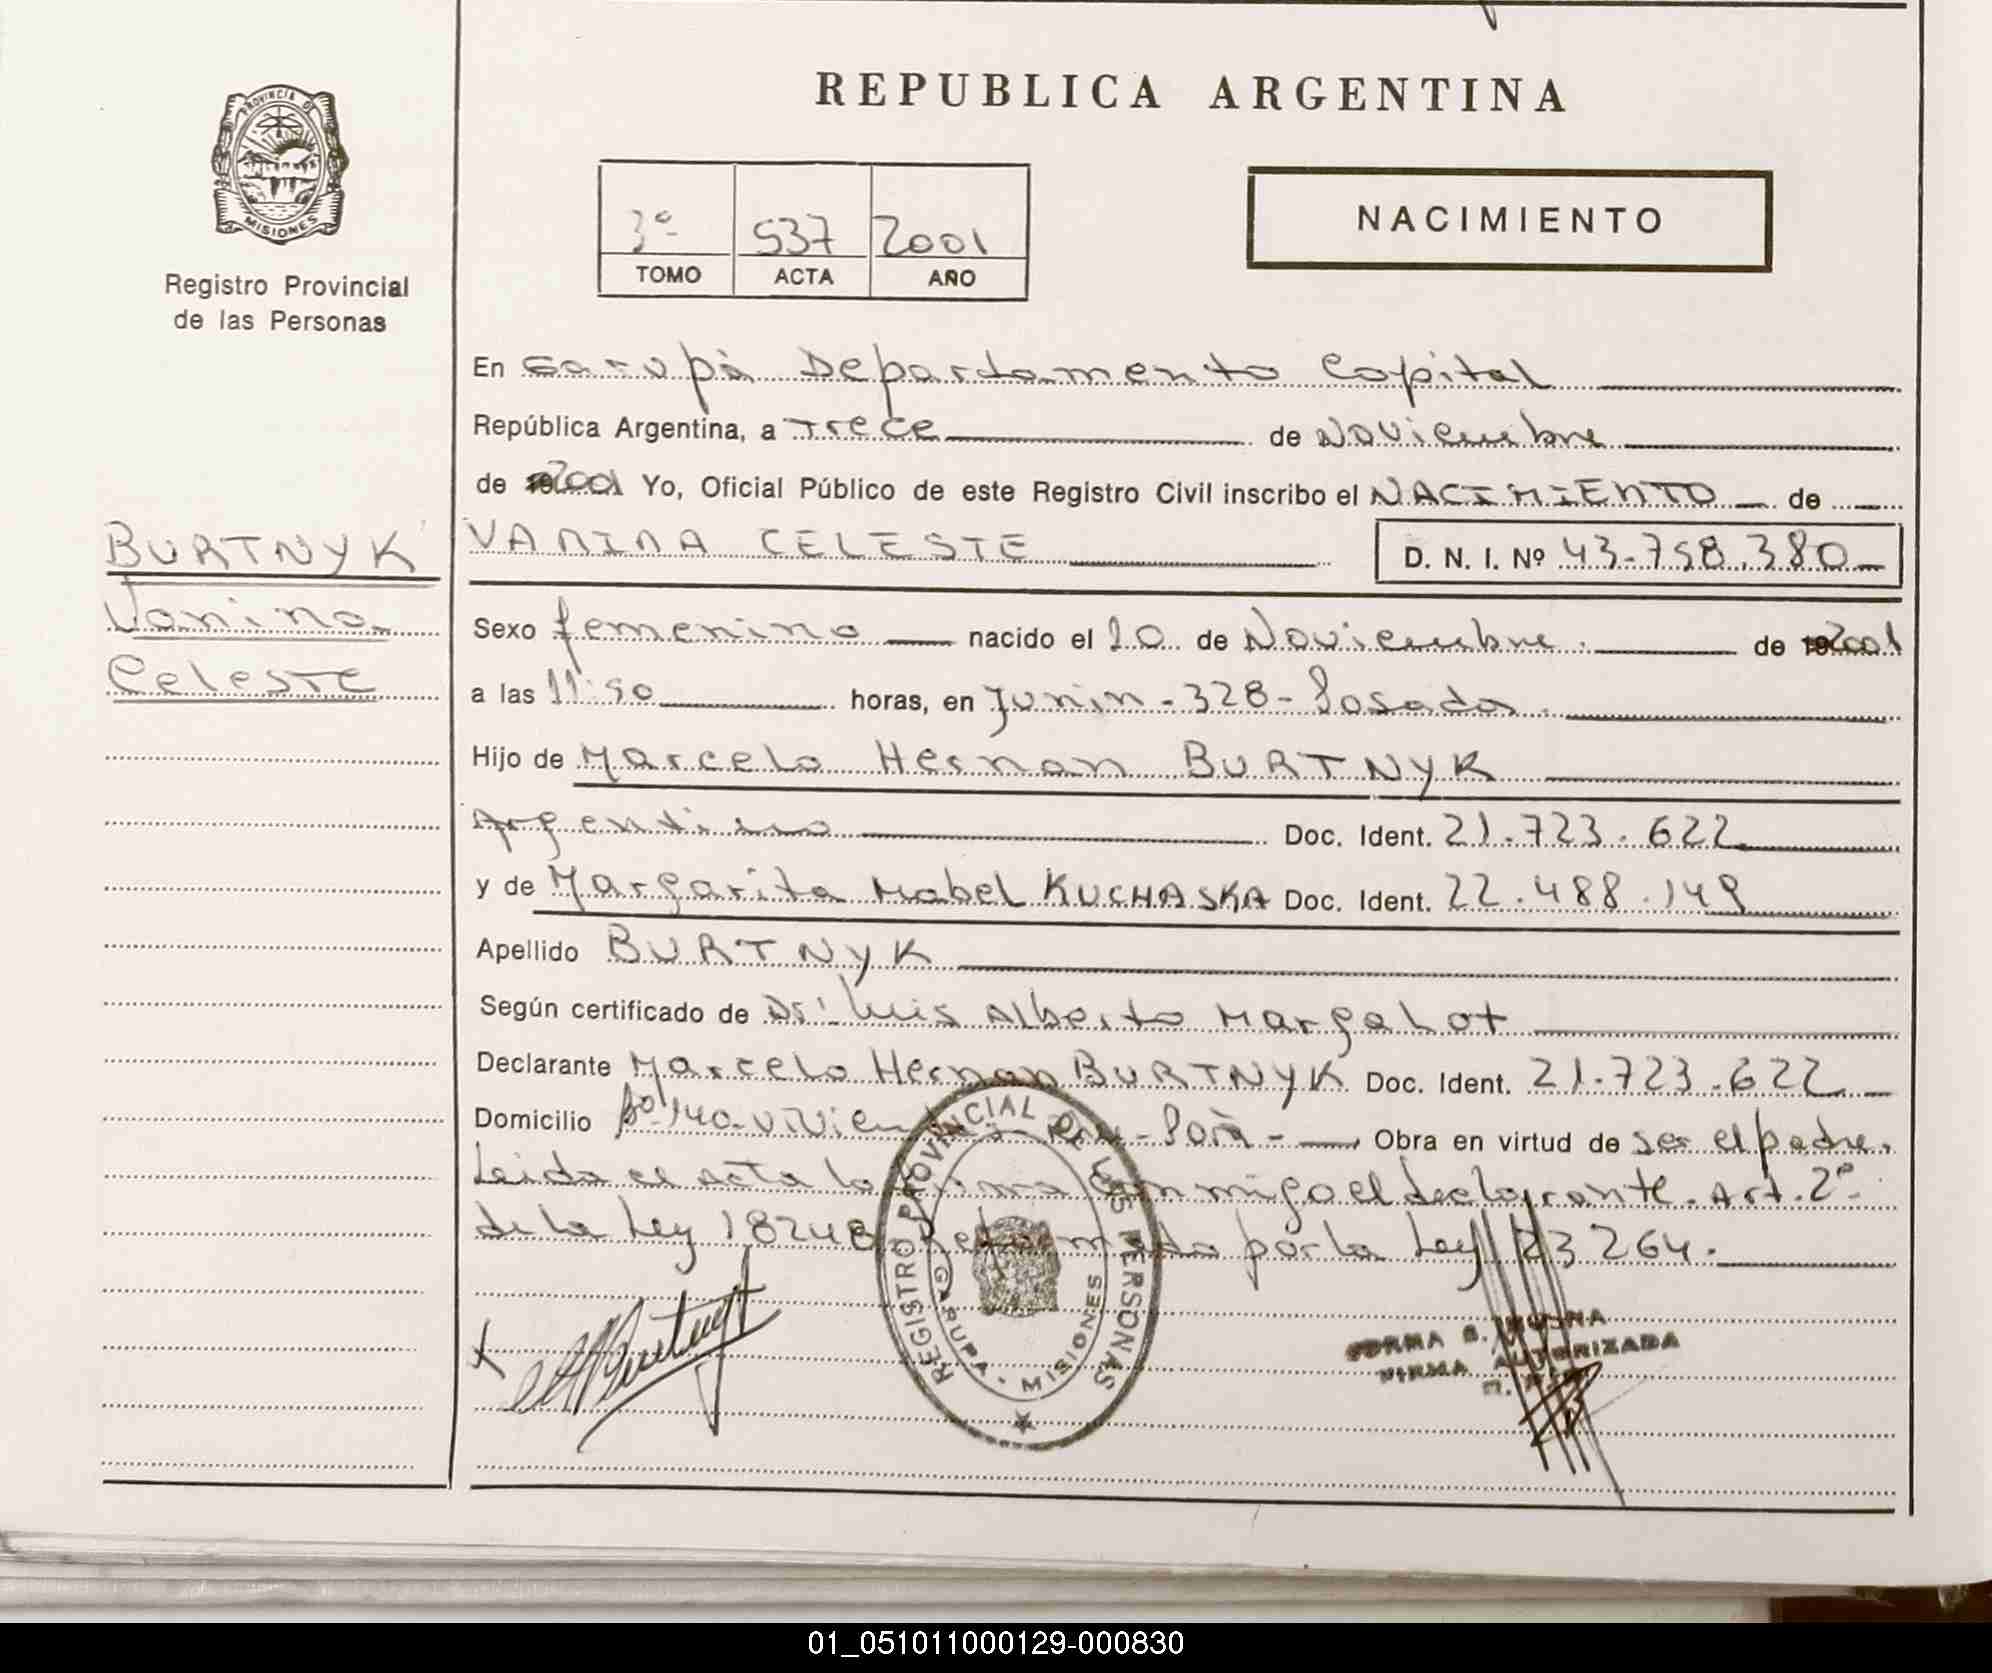 REPUBLICA ARGENTINA
PROVINCIA DE
MISIONES
Registro Provincial
de las Personas
3º 537 2001
TOMO ACTA AÑO
NACIMIENTO
En Garupà Departamento Capital
República Argentina, a Trece de Noviembre
de 2001 Yo, Oficial Público de este Registro Civil inscribo el NACIMIENTO de
BURTNYK
Vanina
Celeste
VANINA CELESTE D. N. I. Nº 43.758.380
Sexo femenino nacido el 10 de Noviembre de 2001
a las 11:50 horas, en Junin - 328 - Posadas
Hijo de Marcelo Hernan BURTNYK
Argentino Doc. Ident. 21.723.622
y de Margarita Mabel KUCHASKA Doc. Ident. 22.488.149
Apellido BURTNYK
Según certificado de Dr. Luis Alberto Margalot
Declarante Marcelo Hernan BURTNYK Doc. Ident. 21.723.622
Domicilio Bº 140 Obra en virtud de ser el padre.
Leida el acta la firma conmigo el declarante. Art. 2º
de la Ley 18248 reformada por la Ley 23264.
REGISTRO PROVINCIAL DE LAS PERSONAS
GARUPA - MISIONES
FIRMA AUTORIZADA
01_051011000129-000830